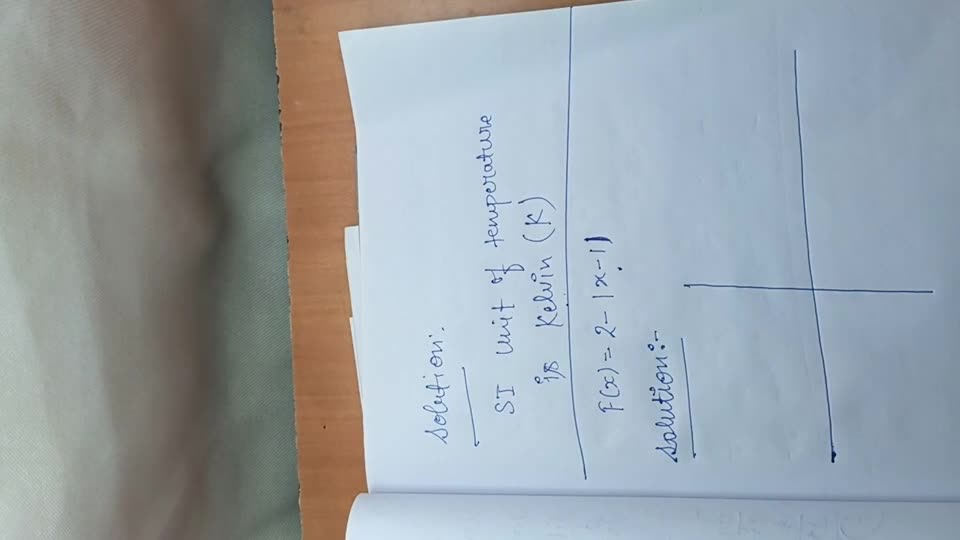 Solution:
SI unit of temperature
is Kelvin (K)
F(x) = 2 - |x-1|
Solution:-